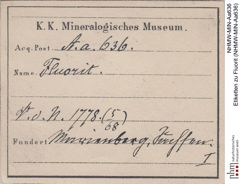 K. K. Mineralogisches Museum.
Acq. Post A.a. 636.
Name: Fluorit.
V.d.N. 1778. (5/68)
Fundort: Marienberg, Sachsen.
I
NHMW-MIN-Aa636
Etiketten zu Fluorit (NHMW-MIN-Aa636)
nhm